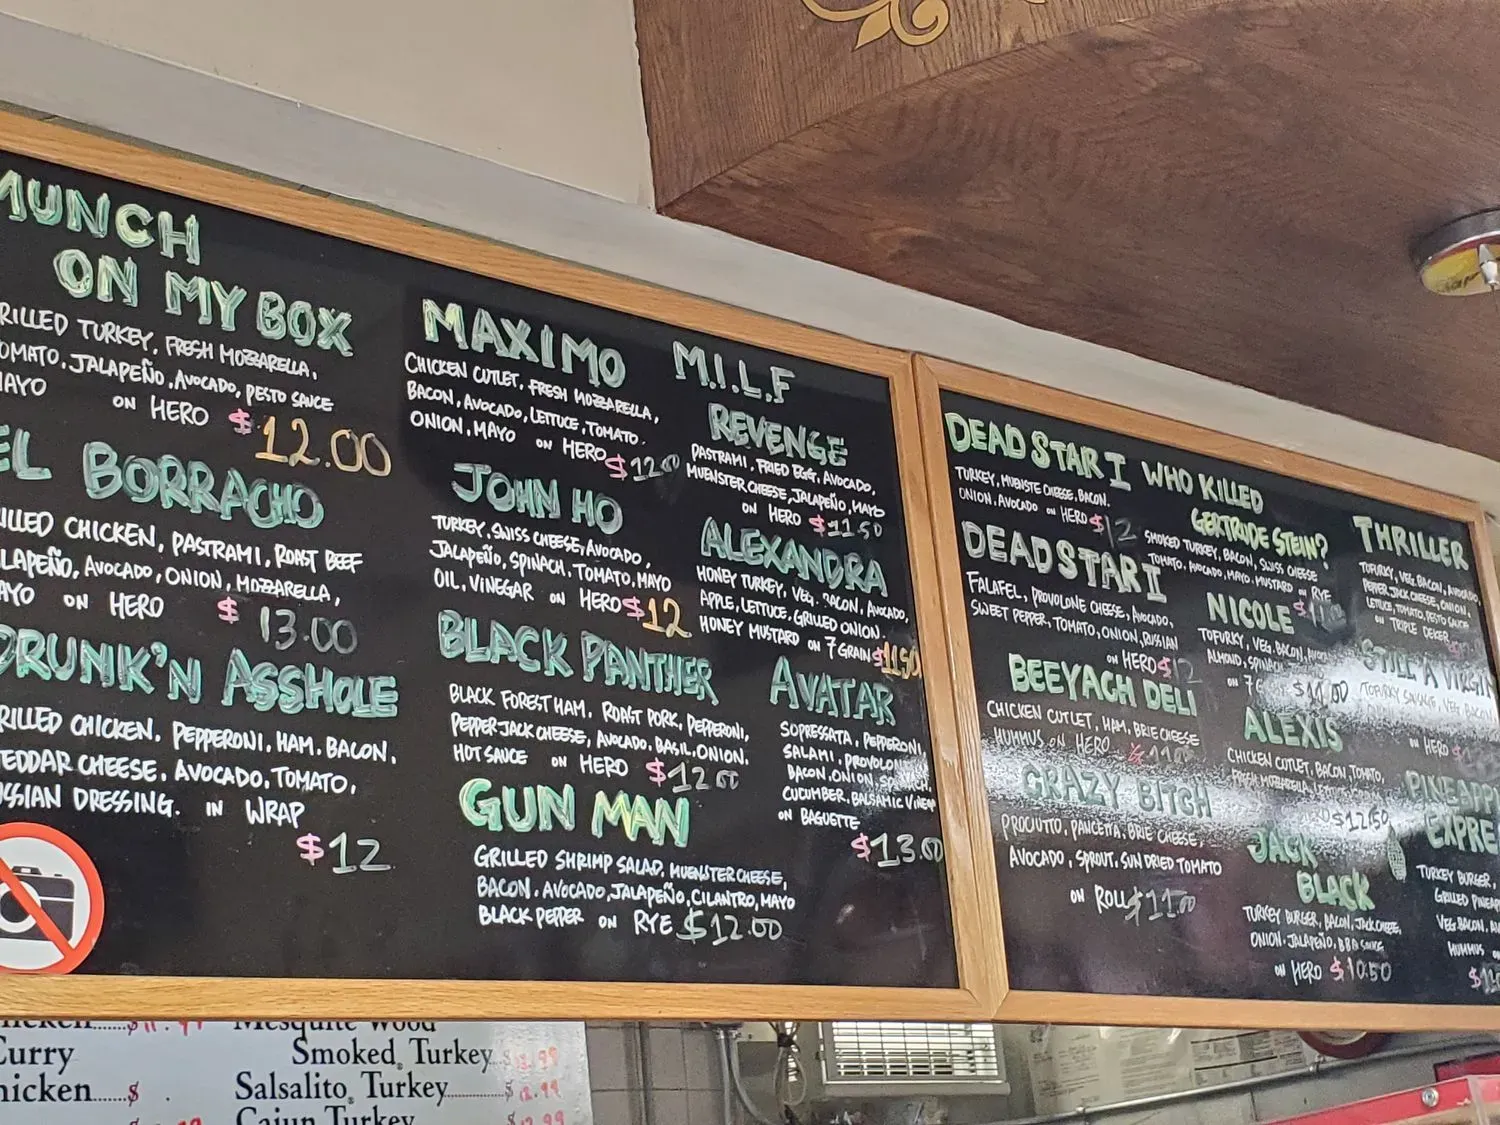 MUNCH
ON MY BOX
RILLED TURKEY, FRESH MOZZARELLA,
OMATO, JALAPEÑO, AVOCADO, PESTO SAUCE
MAYO ON HERO $12.00
EL BORRACHO
ILLED CHICKEN, PASTRAMI, ROAST BEEF
LAPEÑO, AVOCADO, ONION, MOZZARELLA,
AYO ON HERO $13.00
DRUNK'N ASSHOLE
RILLED CHICKEN, PEPPERONI, HAM, BACON,
EDDAR CHEESE, AVOCADO, TOMATO,
SSIAN DRESSING. IN WRAP
$12
MAXIMO
CHICKEN CUTLET, FRESH MOZZARELLA,
BACON, AVOCADO, LETTUCE, TOMATO.
ONION, MAYO ON HERO $12.00
JOHN HO
TURKEY, SWISS CHEESE, AVOCADO,
JALAPEÑO, SPINACH, TOMATO, MAYO
OIL, VINEGAR ON HERO $12
BLACK PANTHER
BLACK FOREST HAM, ROAST PORK, PEPPERONI,
PEPPER JACK CHEESE, AVOCADO, BASIL, ONION,
HOT SAUCE ON HERO $12.00
GUN MAN
GRILLED SHRIMP SALAD, MUENSTER CHEESE,
BACON, AVOCADO, JALAPEÑO, CILANTRO, MAYO
BLACK PEPPER ON RYE $12.00
M.I.L.F
REVENGE
PASTRAMI, FRIED EGG, AVOCADO,
MUENSTER CHEESE, JALAPEÑO, MAYO
ON HERO $11.50
ALEXANDRA
HONEY TURKEY, VEG. BACON, AVOCADO,
APPLE, LETTUCE, GRILLED ONION.
HONEY MUSTARD ON 7 GRAIN $11.50
AVATAR
SOPRESSATA, PEPPERONI,
SALAMI, PROVOLON
BACON, ONION, SPINACH,
CUCUMBER, BALSAMIC VINEGAR
ON BAGUETTE
$13.00
DEAD STAR I
TURKEY, MUENSTE CHEESE, BACON,
ONION, AVOCADO ON HERO $12
DEAD STAR II
FALAFEL, PROVOLONE CHEESE, AVOCADO,
SWEET PEPPER, TOMATO, ONION, RUSSIAN
ON HERO $12
BEEYACH DELI
CHICKEN CUTLET, HAM, BRIE CHEESE
HUMMUS ON HERO $11.00
CRAZY BITCH
PROCIUTTO, PANCETTA, BRIE CHEESE,
AVOCADO, SPROUT, SUN DRIED TOMATO
ON ROLL $11.00
WHO KILLED
GERTRUDE STEIN?
SMOKED TURKEY, BACON, SWISS CHEESE
TOMATO, AVOCADO, MAYO, MUSTARD ON RYE
NICOLE
TOFURKY, VEG. BACON, AVOCA
ALMOND, SPINACH
ON 7 $11.00
ALEXIS
CHICKEN CUTLET, BACON, TOMATO,
FRESH MOZZARELLA, LETTUCE
$12.50
JACK
BLACK
TURKEY BURGER, BACON, JACK CHEESE,
ONION, JALAPEÑO, BBQ SAUCE
ON HERO $10.50
THRILLER
TOFURKY, VEG. BACON, AVOCADO
PEPPER JACK CHEESE, ONION,
LETTUCE, TOMATO, PESTO SAUCE
ON TRIPLE DEKER
STILL A VIRGIN
TOFURKY SAUSAGE, VEG. BACON
ON HERO
PINEAPP
EXPRE
TURKEY BURGER,
GRILLED PINEAP
VEG BACON, AV
HUMMUS ON
Curry
hicken......$
Mesquite Wood
Smoked Turkey
Salsalito Turkey
Cajun Turkey